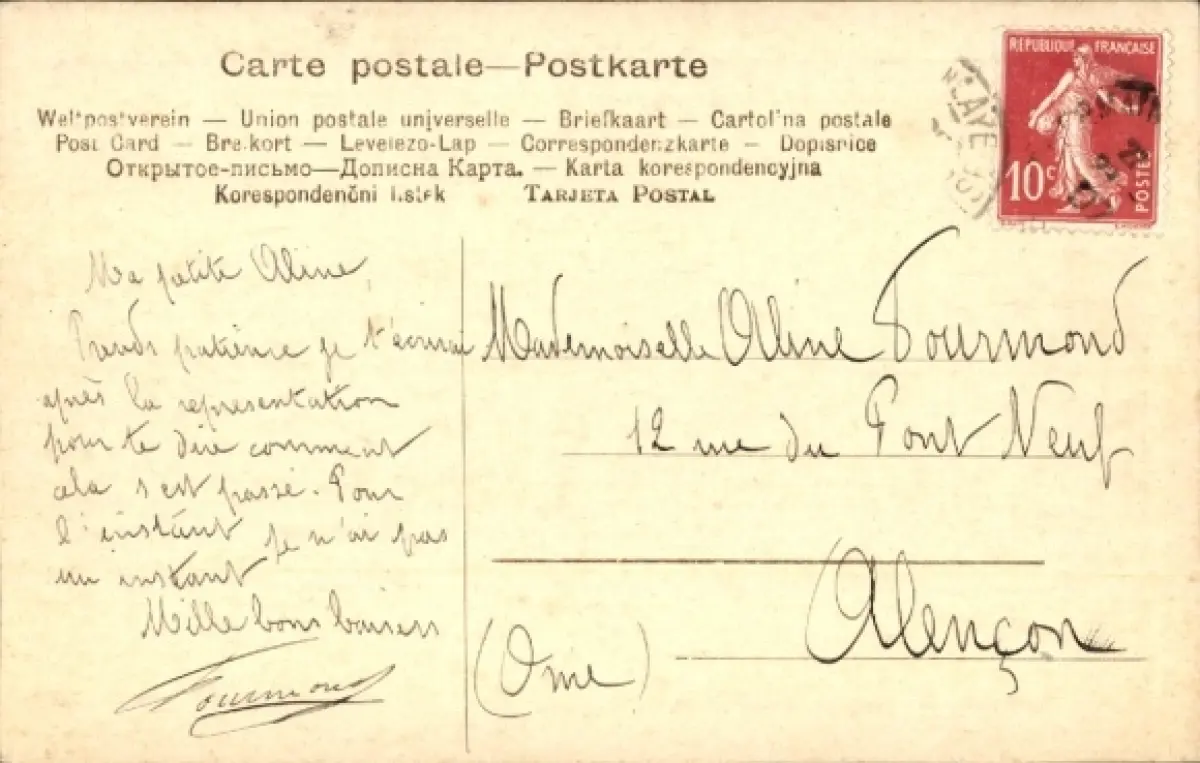 Carte postale—Postkarte
Weltpostverein — Union postale universelle — Briefkaart — Cartolina postale
Post Card — Brevkort — Levelezo-Lap — Correspondenzkarte — Dopisnice
Открытое-письмо—Дописна Карта. — Karta korespondencyjna
Korespondenčni listek TARJETA POSTAL
REPUBLIQUE FRANÇAISE
10c
POSTES
Ma petite Aline,
Prends patience je t'écrirai
après la représentation
pour te dire comment
cela s'est passé. Pour
l'instant je n'ai pas
un instant
Mille bons baisers
Fourmond
Mademoiselle Aline Fourmond
12 rue du Pont Neuf
Alençon
(Orne)